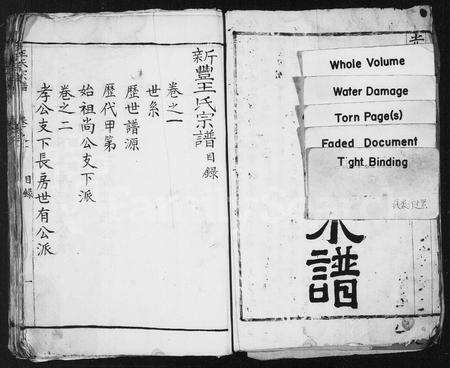 新豐王氏宗譜目錄
卷之一
世系
歷世譜源
歷代甲第
始祖尚公支下派
卷之二
孝公支下長房世有公派
目錄
Whole Volume
Water Damage
Torn Page(s)
Faded Document
Tight Binding
宗譜